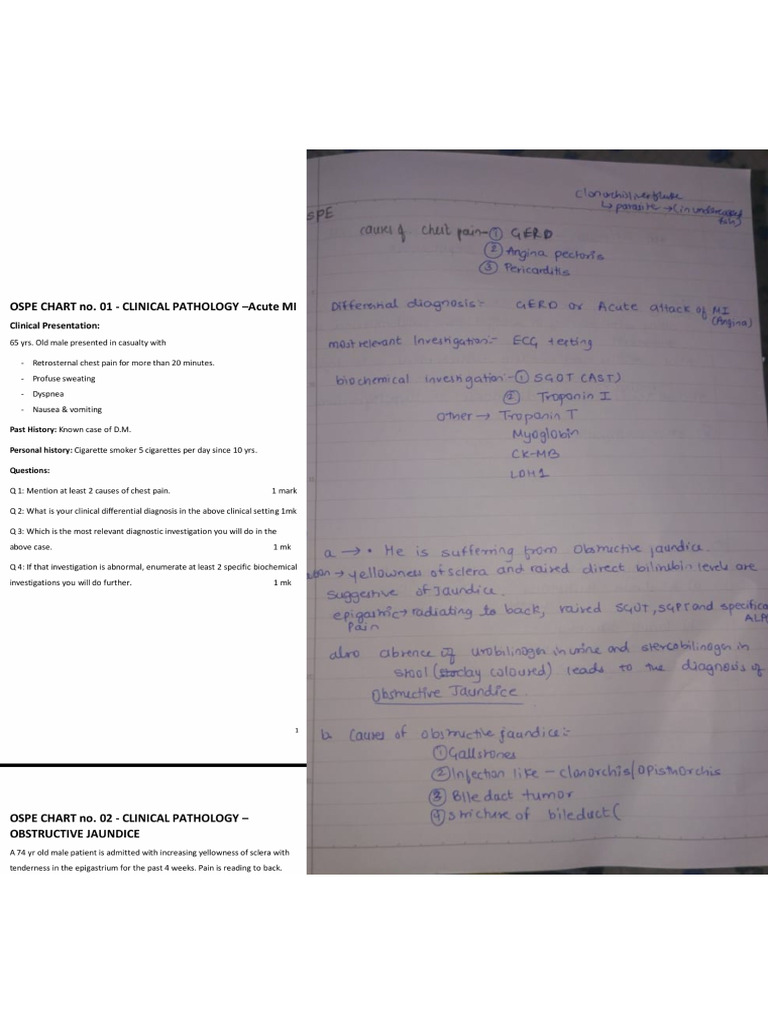 OSPE CHART no. 01 - CLINICAL PATHOLOGY –Acute MI
Clinical Presentation:
65 yrs. Old male presented in casualty with
- Retrosternal chest pain for more than 20 minutes.
- Profuse sweating
- Dyspnea
- Nausea & vomiting
Past History: Known case of D.M.
Personal history: Cigarette smoker 5 cigarettes per day since 10 yrs.
Questions:
Q 1: Mention at least 2 causes of chest pain. 1 mark
Q 2: What is your clinical differential diagnosis in the above clinical setting 1mk
Q 3: Which is the most relevant diagnostic investigation you will do in the
above case. 1 mk
Q 4: If that investigation is abnormal, enumerate at least 2 specific biochemical
investigations you will do further. 1 mk
1
OSPE CHART no. 02 - CLINICAL PATHOLOGY –
OBSTRUCTIVE JAUNDICE
A 74 yr old male patient is admitted with increasing yellowness of sclera with
tenderness in the epigastrium for the past 4 weeks. Pain is reading to back.
↳ parasite → (in undercooked
fish)
SPE
causes of chest pain- ① GERD
② Angina pectoris
③ Pericarditis
Differential diagnosis:- GERD or Acute attack of MI
(Angina)
most relevant Investigation:- ECG testing
biochemical investigation:- ① SGOT (AST)
② Troponin I
Other → Troponin T
Myoglobin
CK-MB
LDH1
a → • He is suffering from Obstructive jaundice.
→ yellowness of sclera and raised direct bilirubin levels are
suggestive of Jaundice.
epigastric → radiating to back, raised SGOT, SGPT and specifica
Pain ALP
also absence of urobilinogen in urine and stercobilinogen in
stool (clay coloured) leads to the diagnosis of
Obstructive Jaundice.
b. Causes of obstructive jaundice:-
① Gallstones
② Infection like - clonorchis/Opisthorchis
③ Bile duct tumor
④ stricture of bileduct (